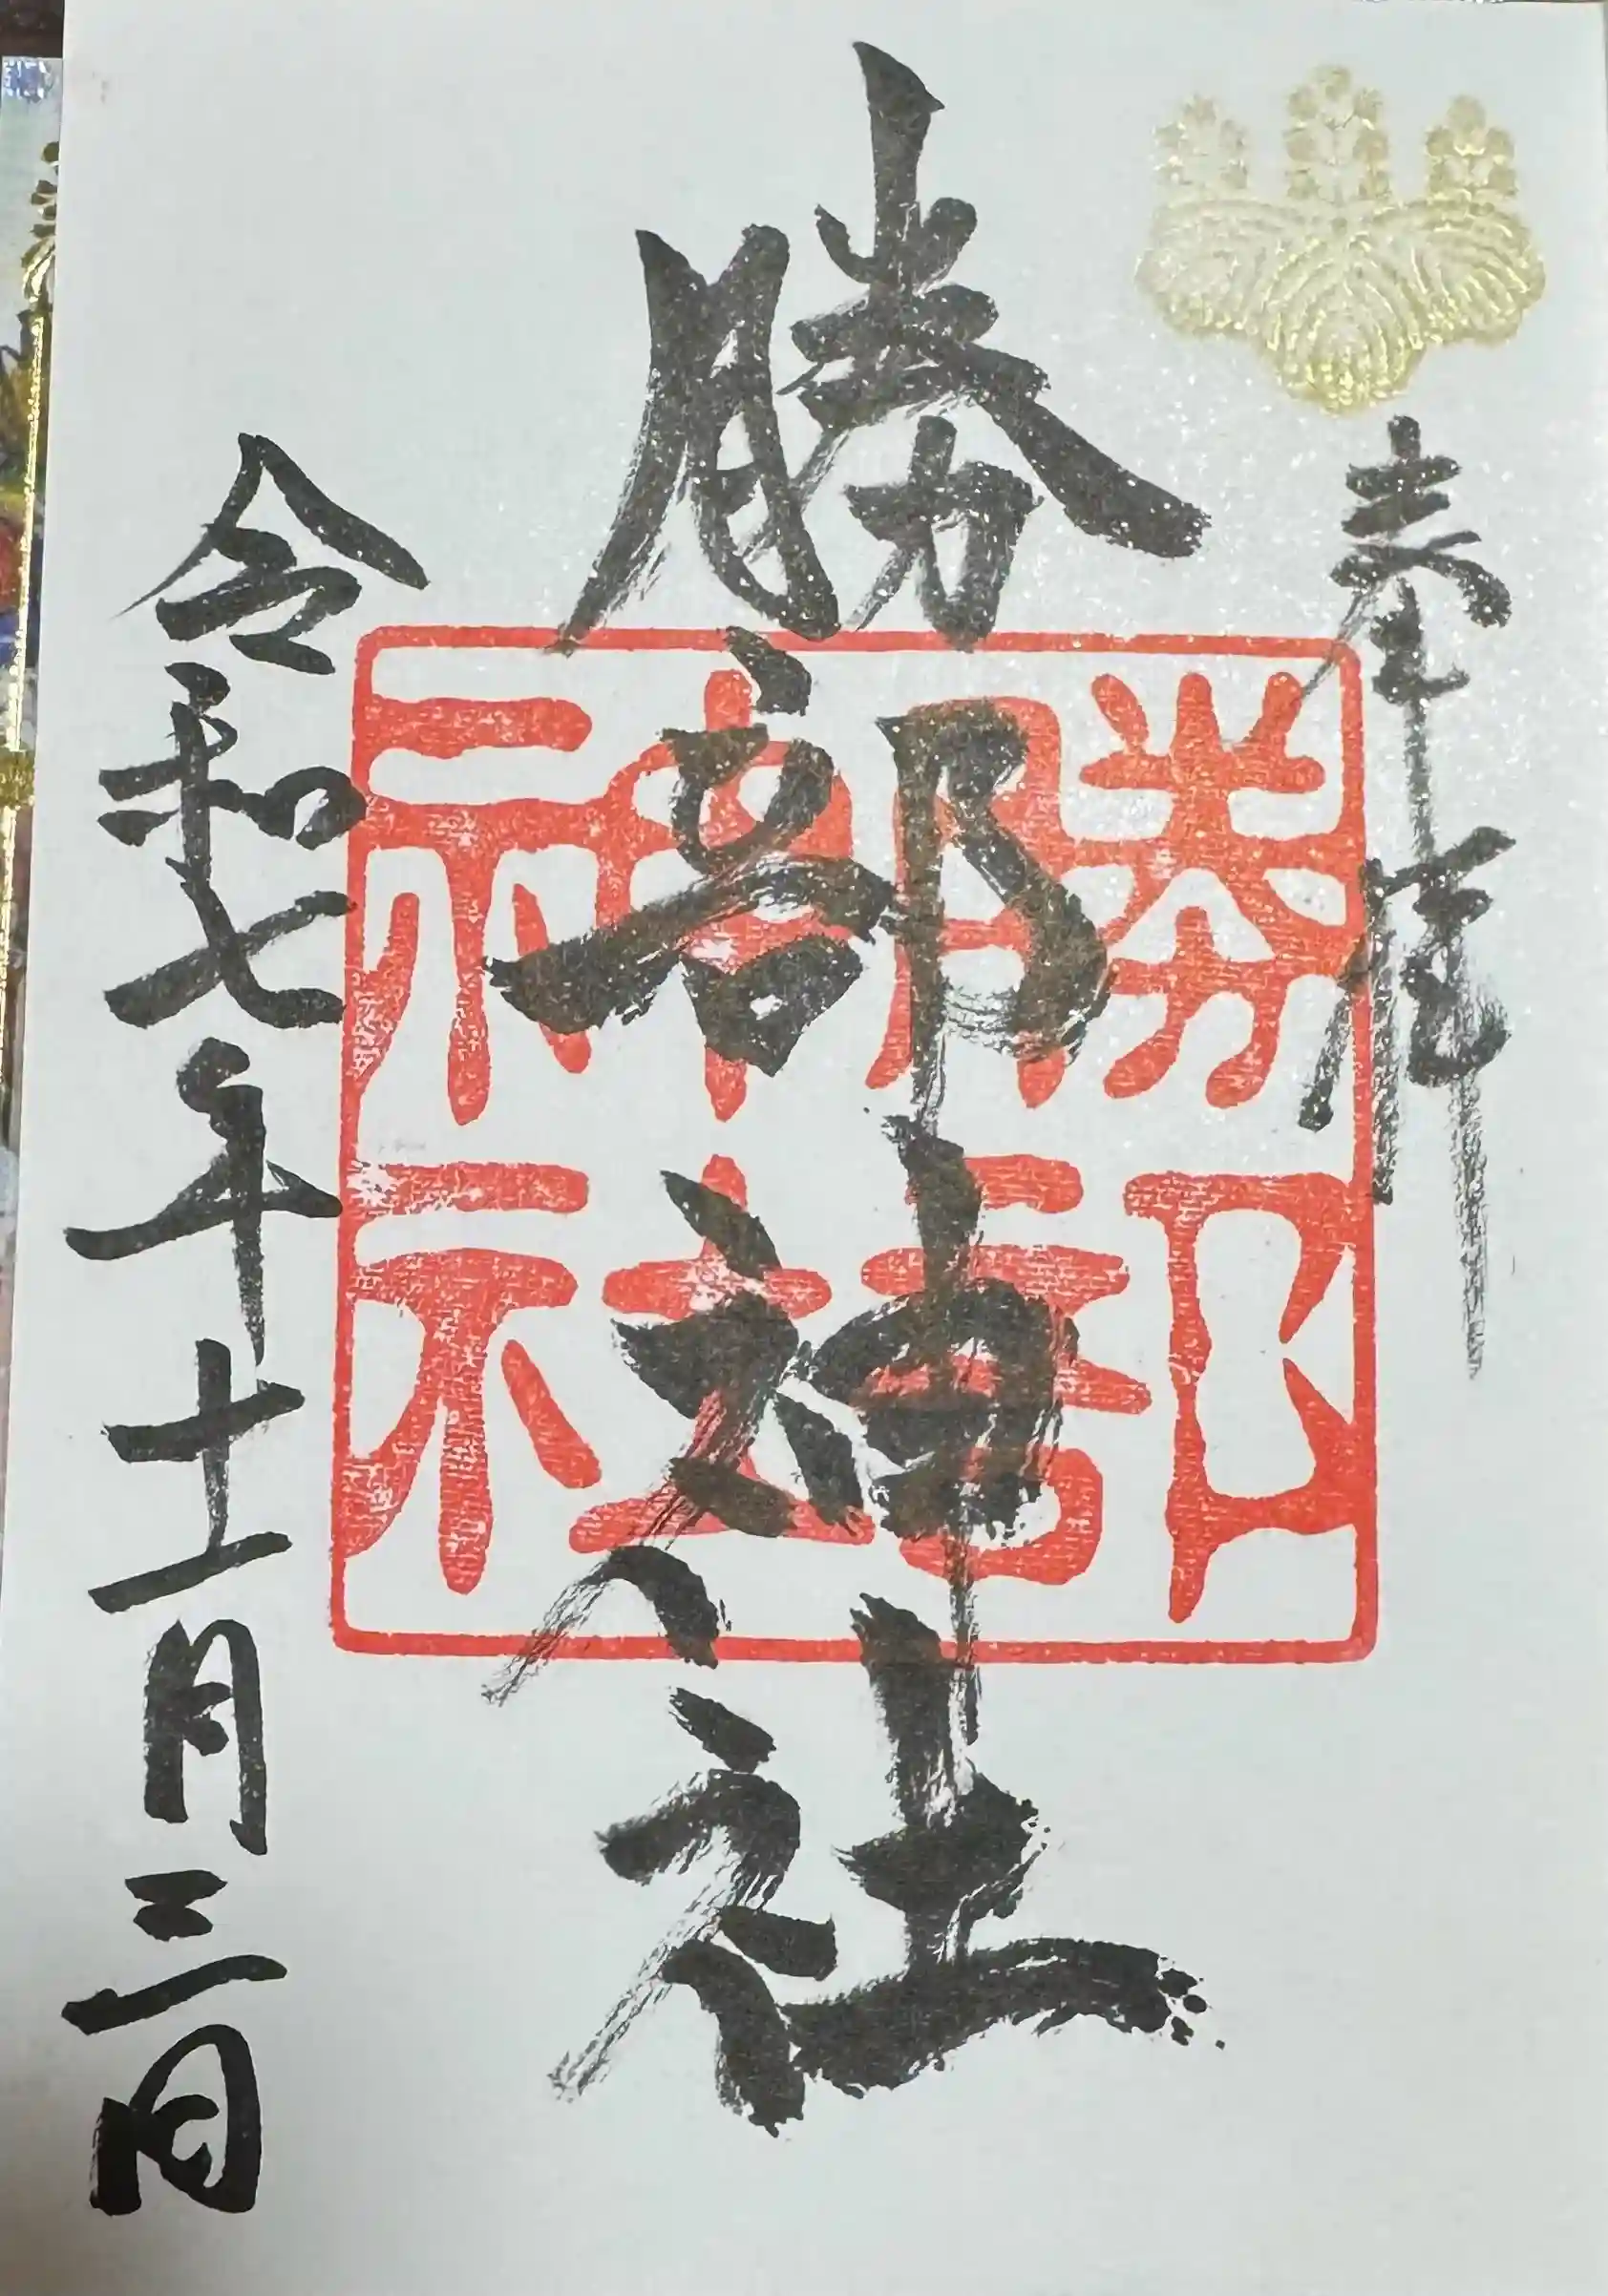 奉拝
勝部神社
勝部神社
令和七年十一月三日